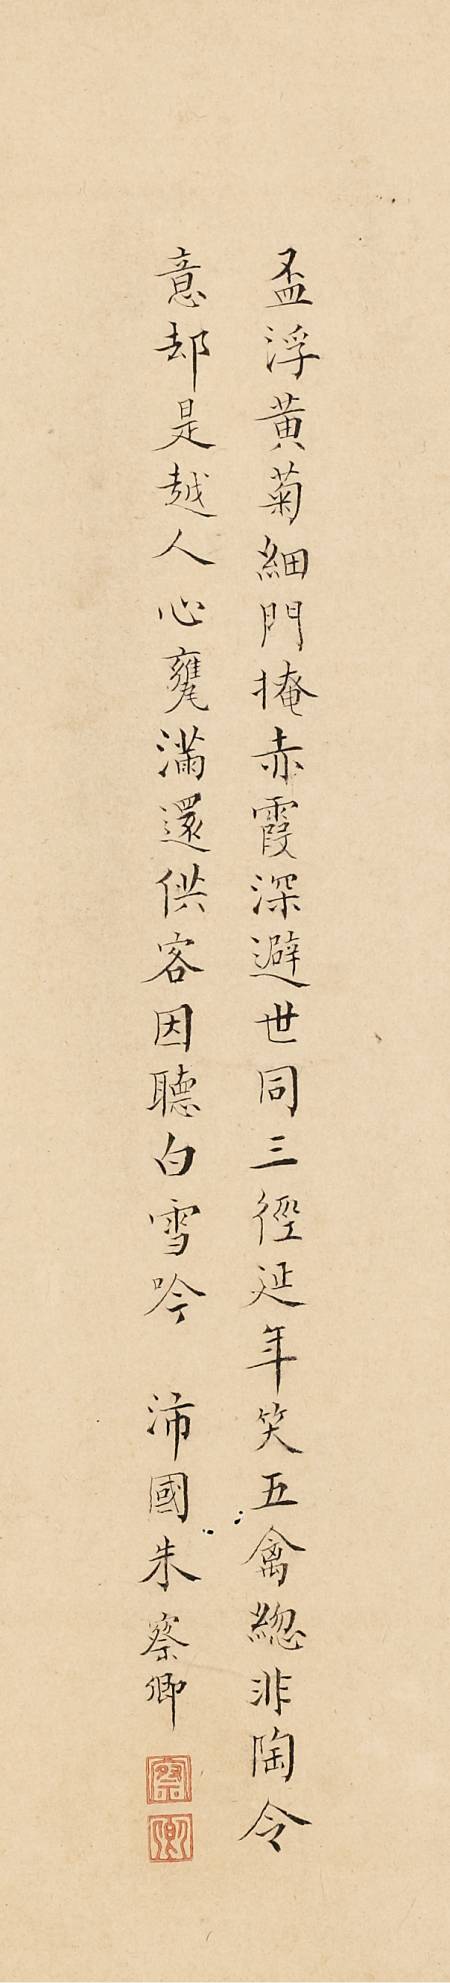 盃浮黄菊細門掩赤霞深避世同三徑延年笑五禽總非陶令
意却是越人心甕滿還供客因聽白雪吟 沛國朱察卿
察
卿